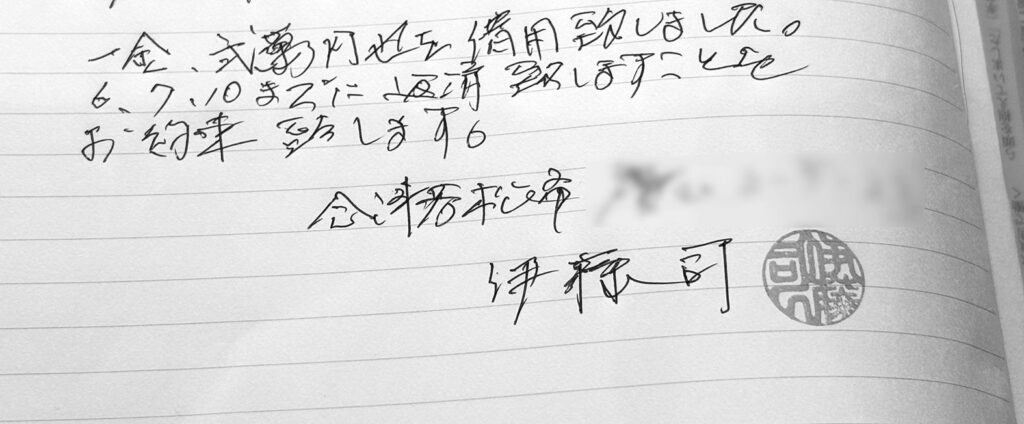 一金、弐萬円也を借用致しました。
6、7、10までに返済致しますことを
お約束致します。
会津若松市
伊藤司
伊藤司